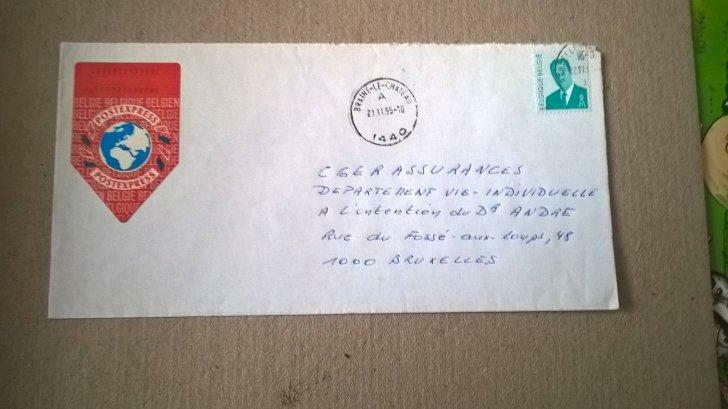 BELGIE BELGIQUE BELGIEN
POSTEXPRESS
POSTEXPRESS
BRAINE-LE-CHATEAU
A
21.11.95-10
1440
BELGIQUE-BELGIE
16
CGER ASSURANCES
DEPARTEMENT VIE-INDIVIDUELLE
A l'intention du Dr ANDRE
Rue du Fossé-aux-Loups, 48
1000 BRUXELLES